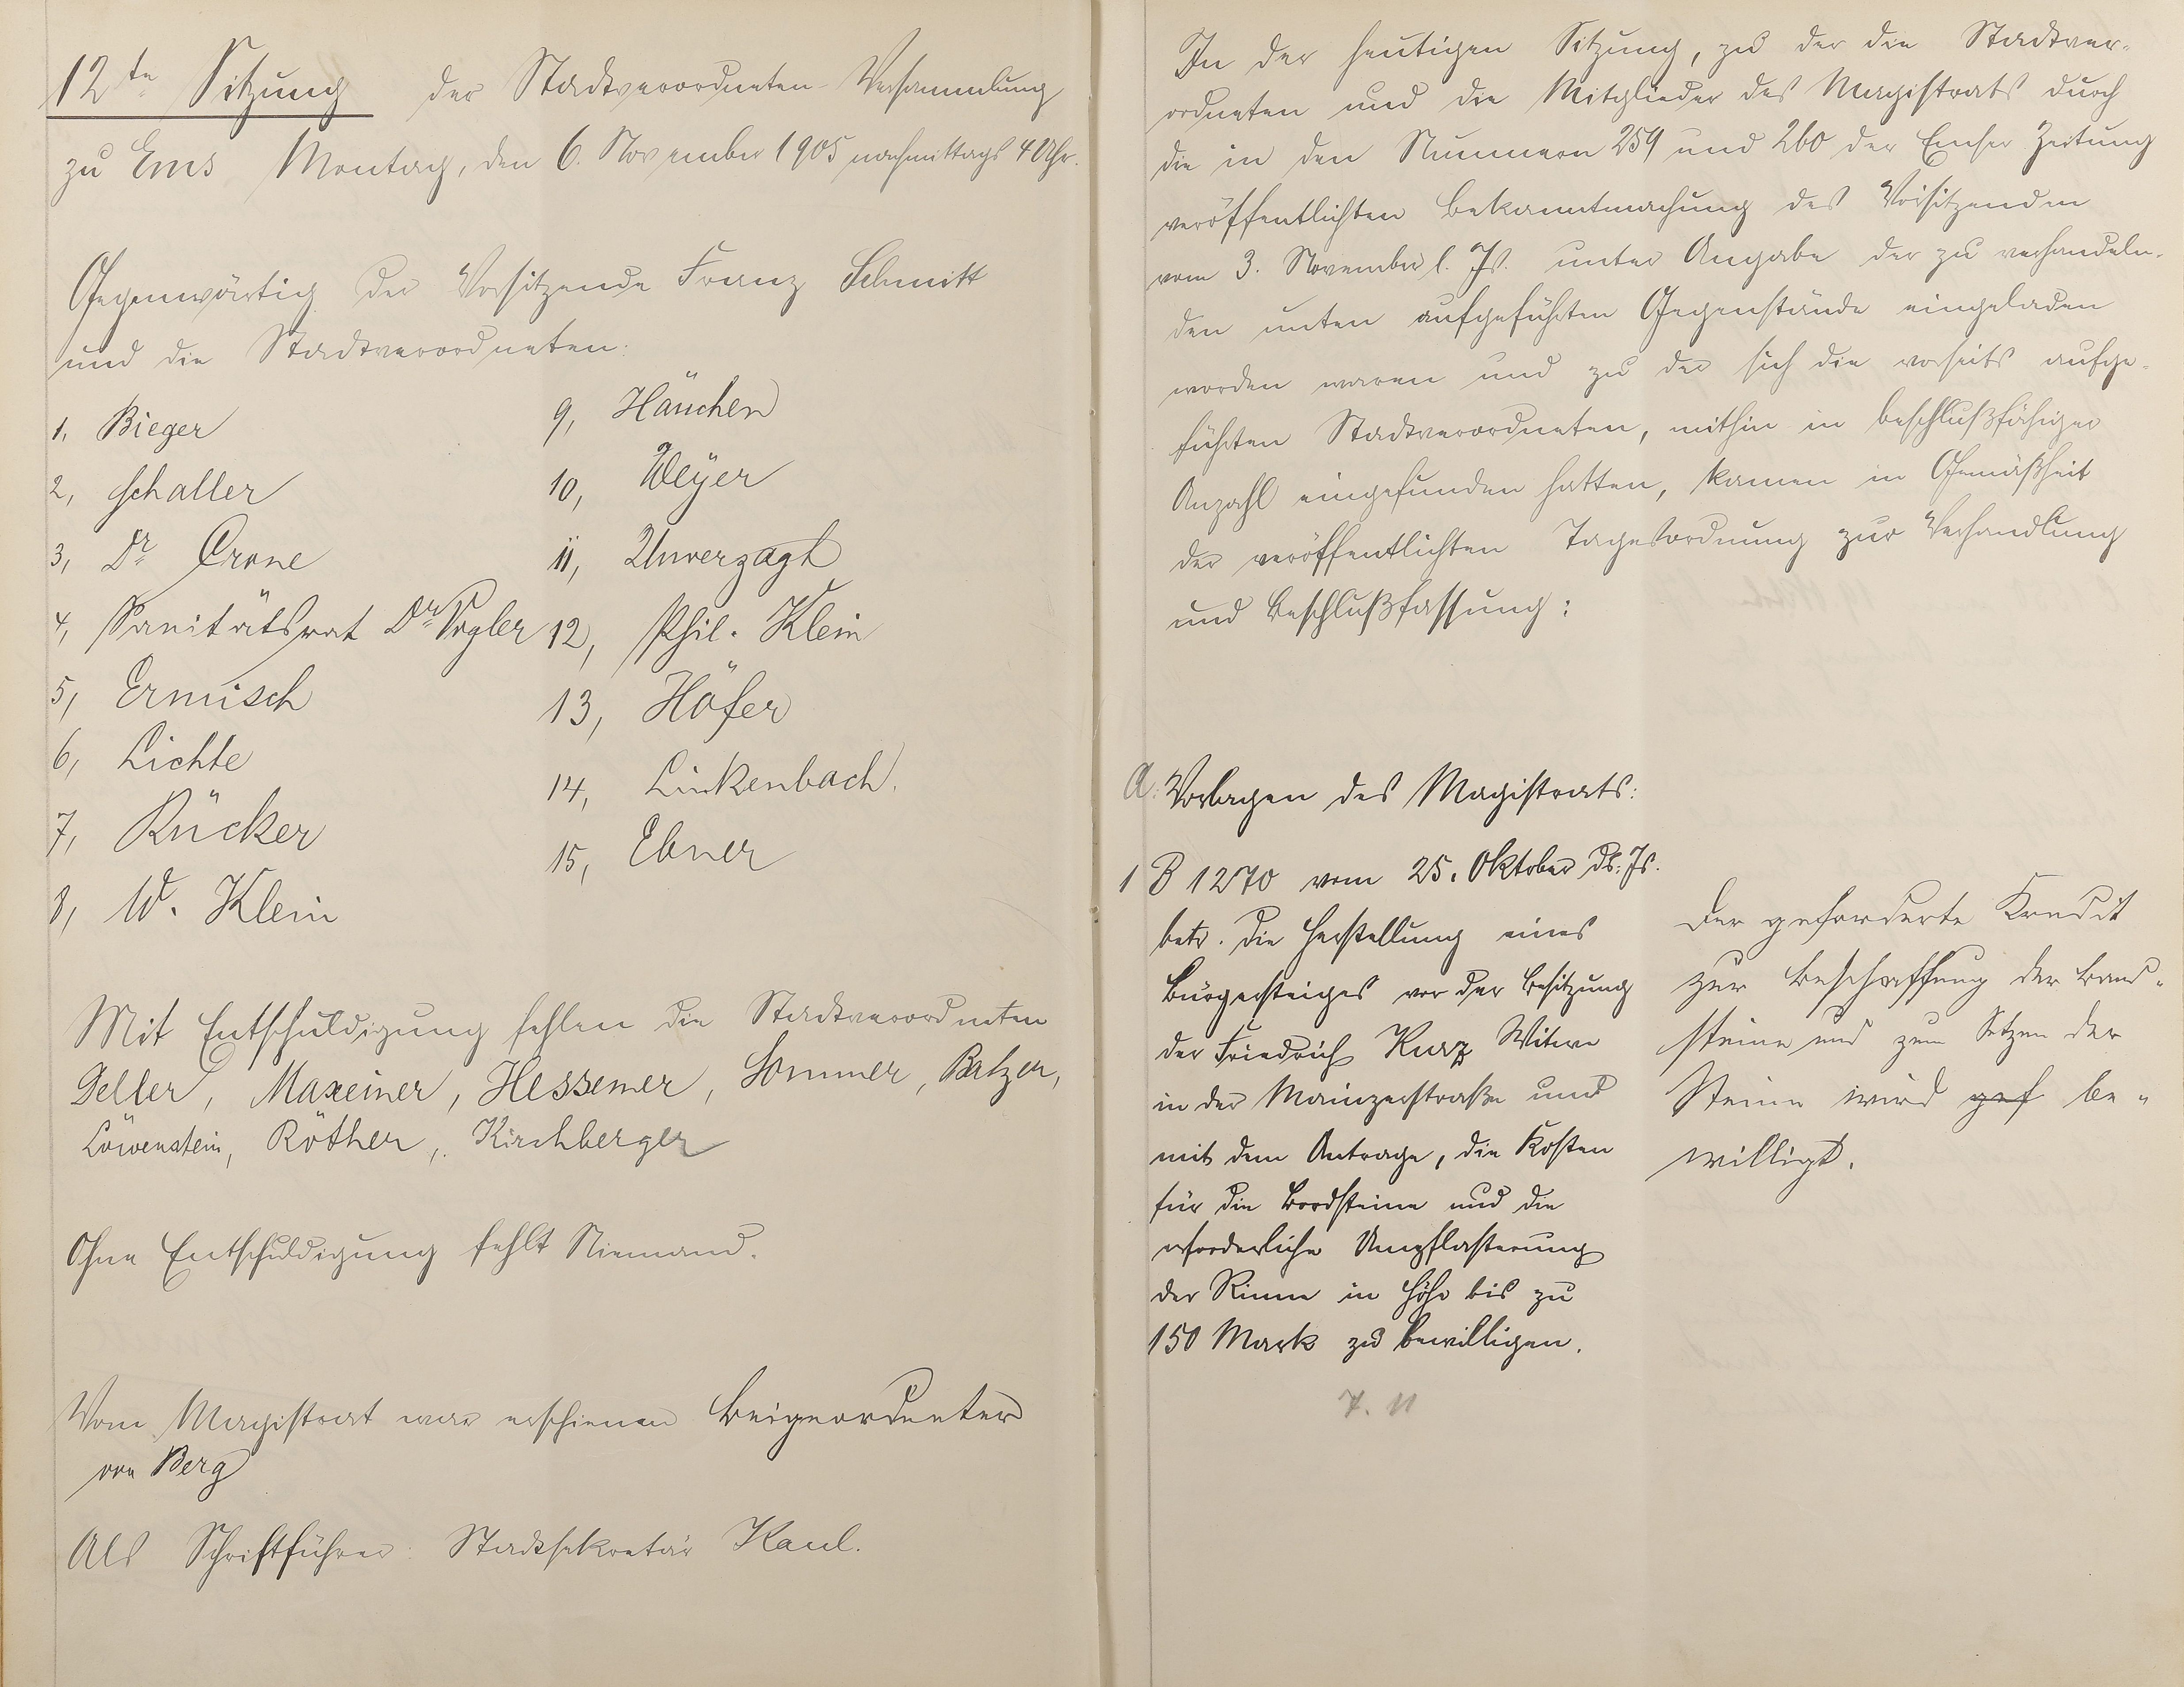 12te Sitzung der Stadtverordneten-Versammlung
zu Ems Montag, den 6. November 1905 nachmittags 4 Uhr.
Gegenwärtig der Vorsitzende Franz Schmitt
und die Stadtverordneten:
1. Bieger
2, Schaller
3, Dr Crone
4, Sanitätsrat Dr Vogler
5, Ermisch
6, Lichte
7, Rücker
8, W. Klein
9, Häuchen
10, Weyer
11, Unverzagt
12, Phil. Klein
13, Höfer
14, Linkenbach.
15, Ebner
Mit Entschuldigung fehlen die Stadtverordneten
Geller, Maxeiner, Hessemer, Sommer, Balzer,
Löwenstein, Röther, Kirchberger
Ohne Entschuldigung fehlt Niemand.
Vom Magistrat war erschienen Beigeordneter
von Berg
Als Schriftführer: Stadtsekretär Kaul.
In der heutigen Sitzung, zu der die Stadtver-
ordneten und die Mitglieder des Magistrats durch
die in den Nummern 259 und 260 der Emser Zeitung
veröffentlichten Bekanntmachung des Vorsitzenden
vom 3. November l. Js. unter Angabe der zu verhandeln-
den unten aufgeführten Gegenstände eingeladen
worden waren und zu der sich die vorseits aufge-
führten Stadtverordneten, mithin in beschlußfähiger
Anzahl eingefunden hatten, kamen in Gemäßheit
der veröffentlichten Tagesordnung zur Verhandlung
und Beschlußfassung:
A: Vorlagen des Magistrats:
1 B 1270 vom 25. Oktober ds. Js.
betr. die Herstellung eines
Bürgersteiges vor der Besitzung
der Friedrich Kurz Witwe
in der Mainzerstraße und
mit dem Antrage, die Kosten
für die Bordsteine und die
erforderliche Umpflasterung
der Rinne in Höhe bis zu
150 Mark zu bewilligen.
7. 11
Der geforderte Kredit
zur Beschaffung der Band-
steine und zum Setzen der
Steine wird gef be-
willigt.